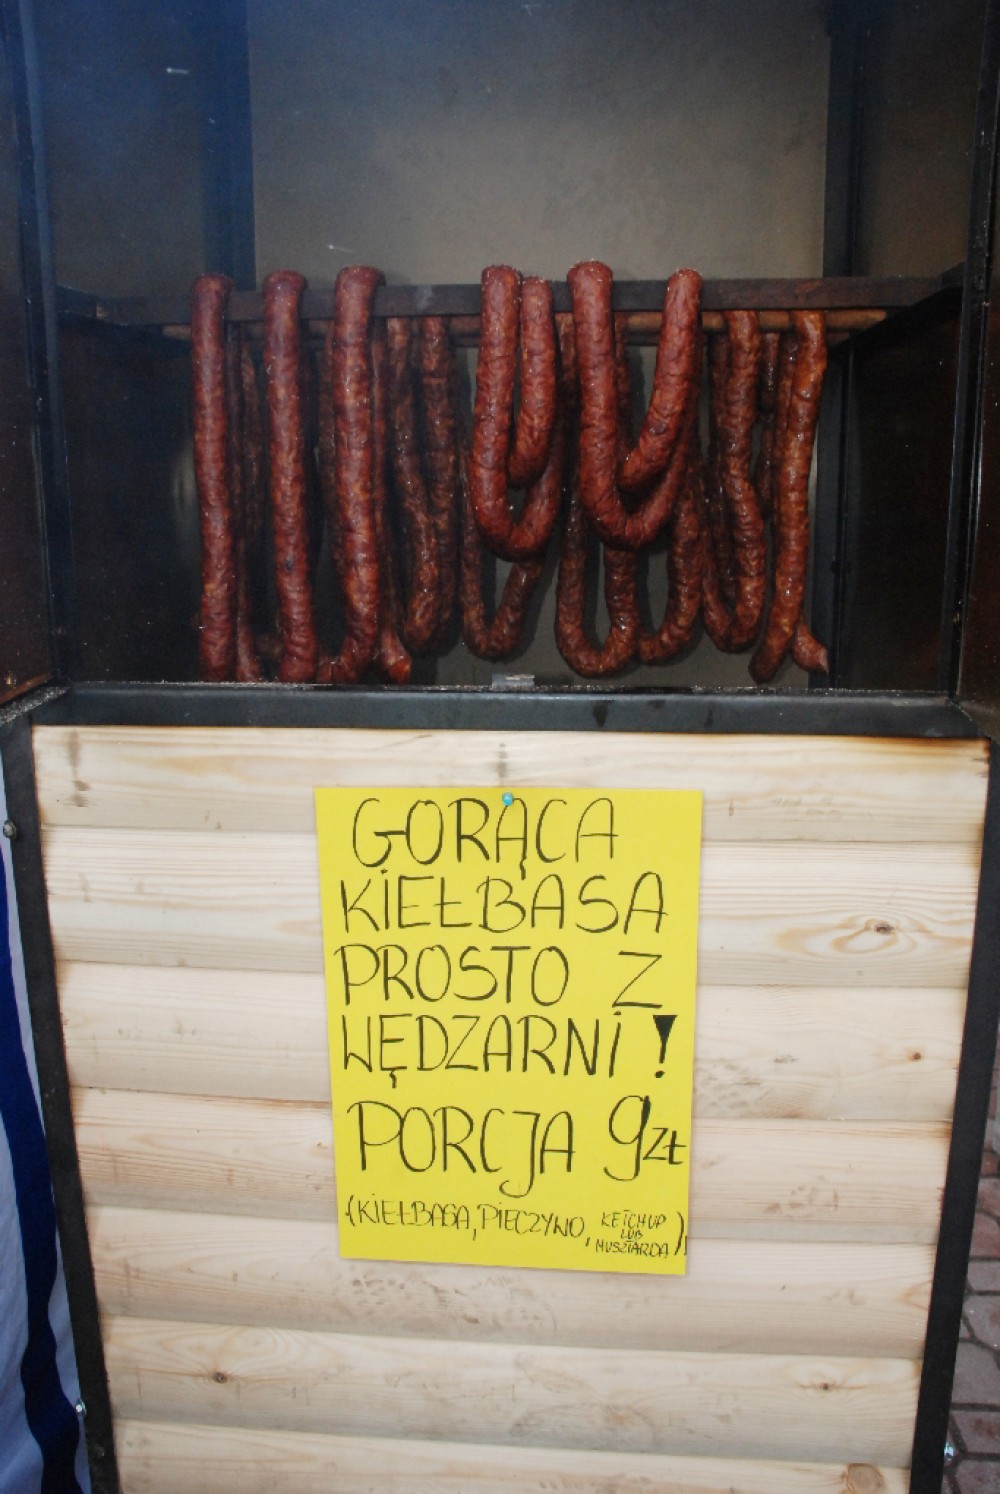 GORĄCA
KIEŁBASA
PROSTO Z
WĘDZARNI!
PORCJA 9ZŁ
(KIEŁBASA, PIECZYWO, KETCHUP
LUB
MUSZTARDA)